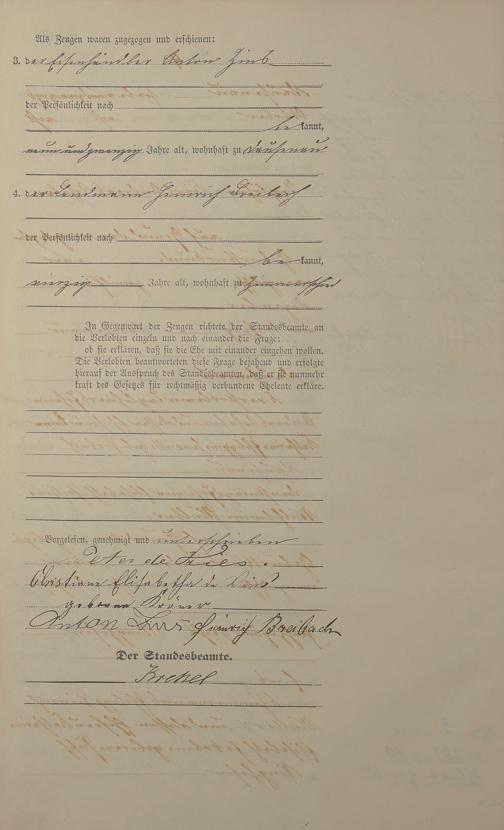 Als Zeugen waren zugezogen und erschienen:
3. der Eisenhändler Anton Zins
der Persönlichkeit nach
be kannt,
neunundzwanzig Jahre alt, wohnhaft zu Dausenau
4. der Landmann Heinrich Breibach
der Persönlichkeit nach
be kannt,
vierzig Jahre alt, wohnhaft zu Zimmerschied
In Gegenwart der Zeugen richtete der Standesbeamte an
die Verlobten einzeln und nach einander die Frage:
ob sie erklären, daß sie die Ehe mit einander eingehen wollen.
Die Verlobten beantworteten diese Frage bejahend und erfolgte
hierauf der Ausspruch des Standesbeamten, daß er sie nunmehr
kraft des Gesetzes für rechtmäßig verbundene Eheleute erkläre.
Vorgelesen, genehmigt und unterschrieben
Peter de Fries.
Christiane Elisabetha de Vries
geborene
Anton Zins Heinrich Breibach
Der Standesbeamte.
Krekel